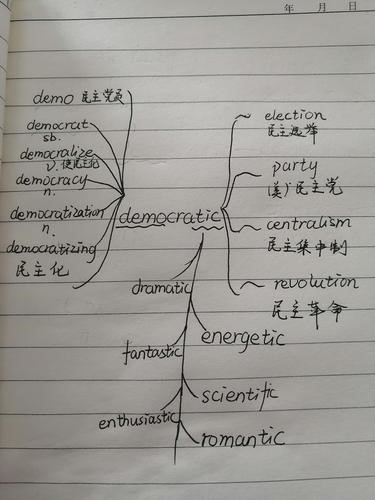 年 月 日
demo 民主党员
democrat
sb.
democralize
v. 使民主化
democracy
n.
democratization
n.
democratizing
民主化
democratic
election
民主选举
party
(美)民主党
centralism
民主集中制
revolution
民主革命
dramatic
energetic
fantastic
scientific
enthusiastic
romantic